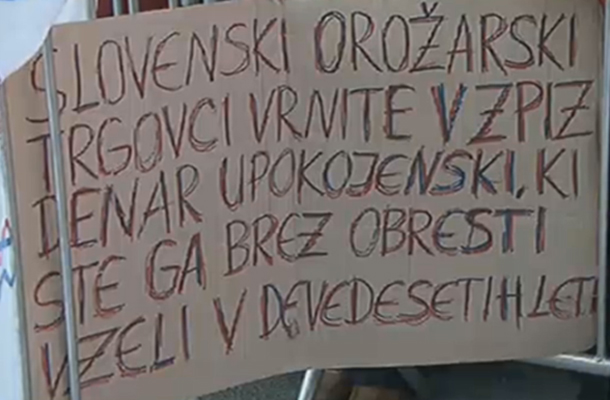 SLOVENSKI OROŽARSKI
TRGOVCI VRNITE V ZPIZ
DENAR UPOKOJENSKI, KI
STE GA BREZ OBRESTI
VZELI V DEVEDESETIH LETI